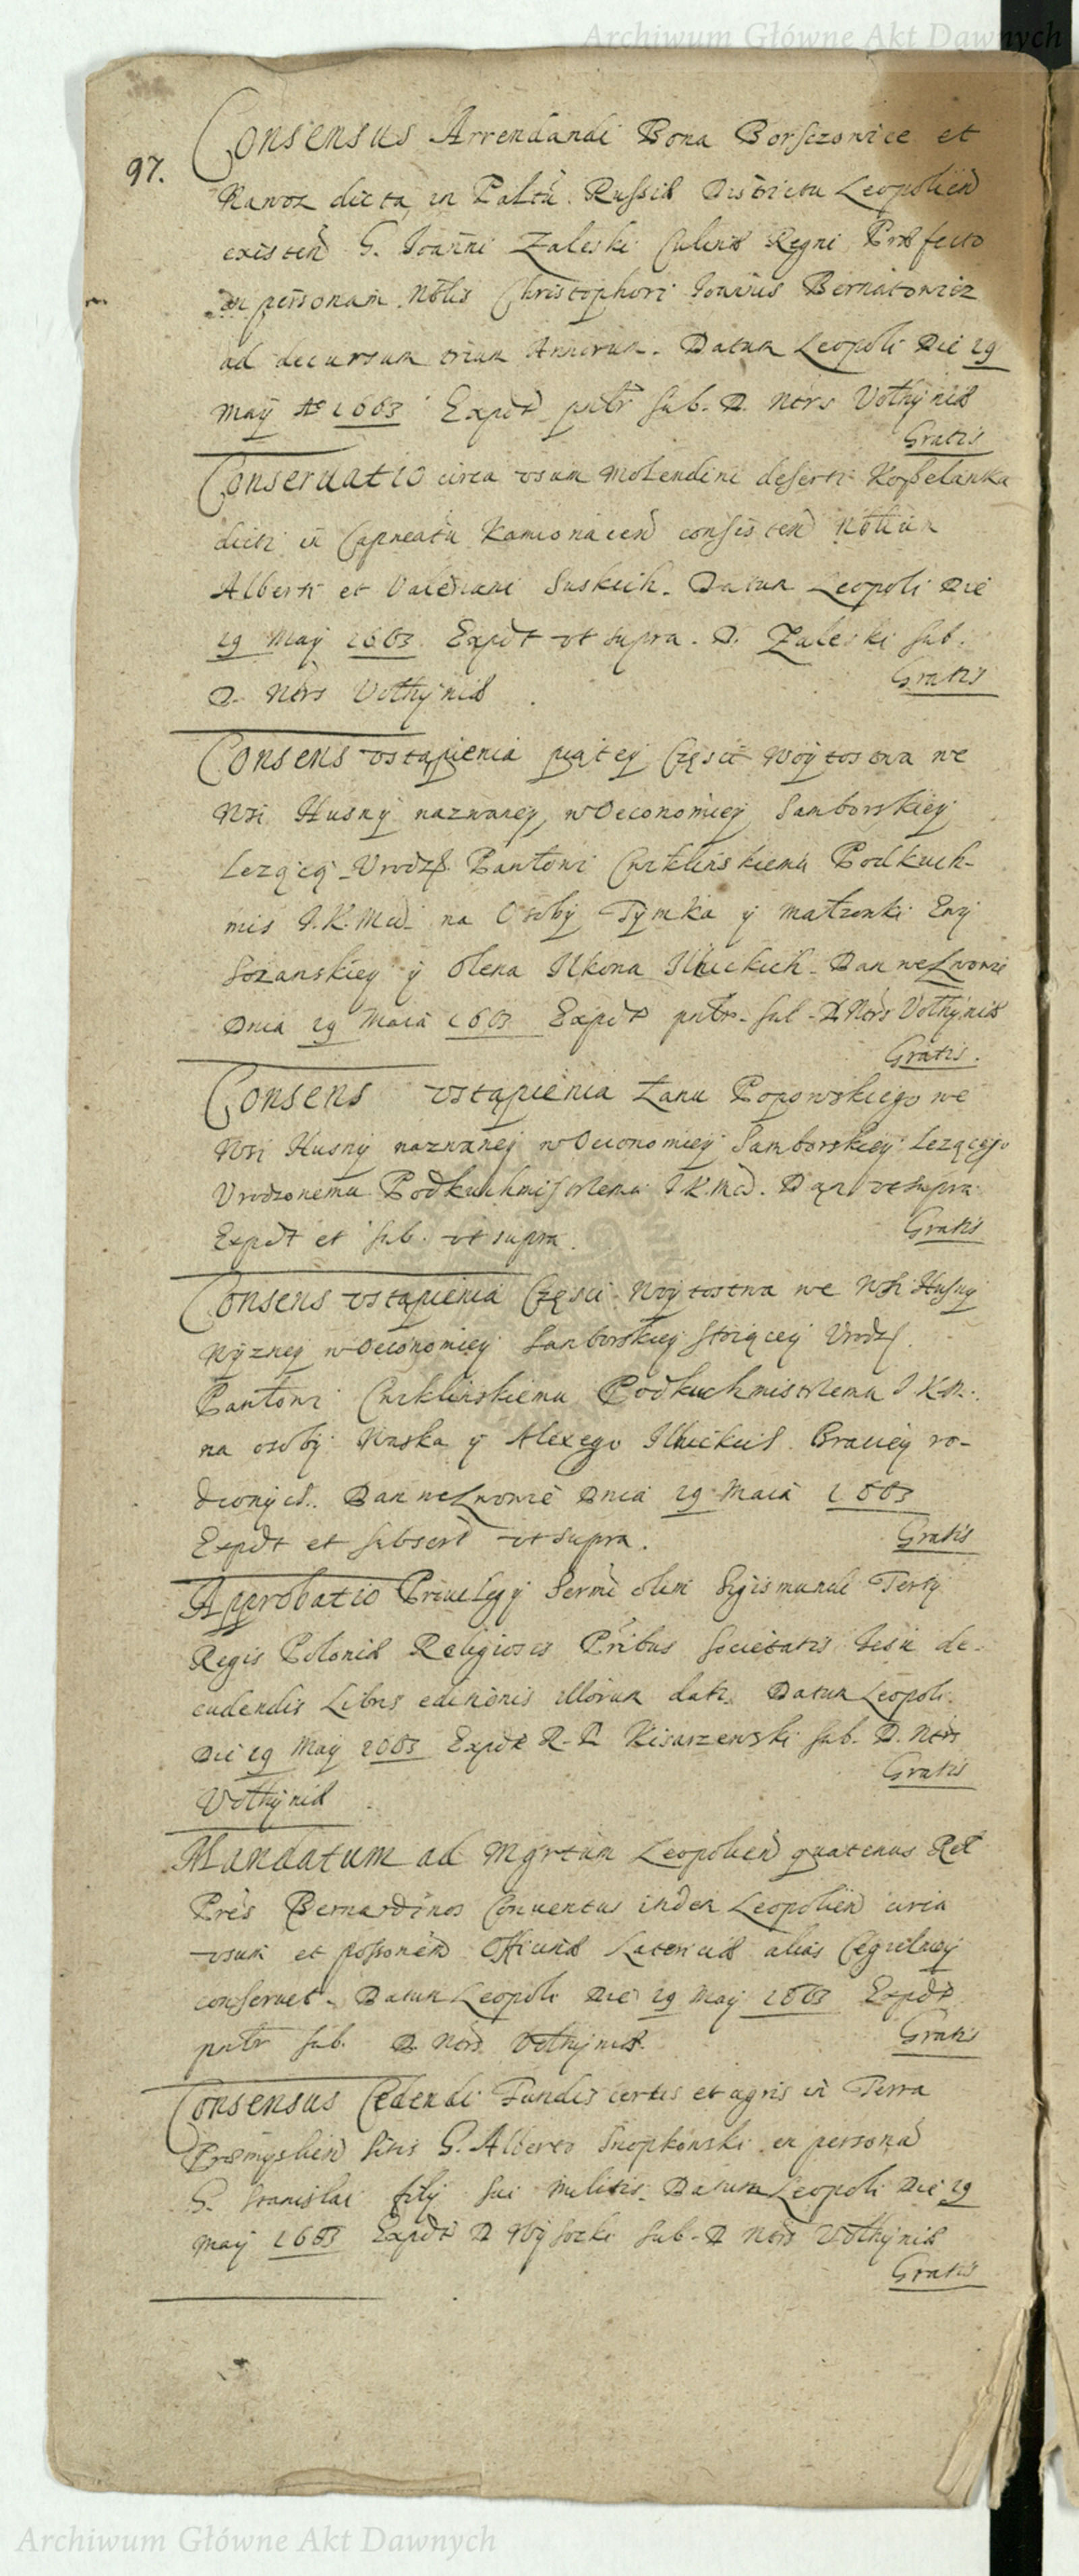 Archiwum Główne Akt Dawnych
97.
Consensus Arrendandi Bona Borsczowice et
dicta in Paltu Russiæ Districtu Leopolien
existen G. Joanni Zaleski Culinæ Regni Præfecto
in personam Nblis Christophori Joannis Bernatowicz
ad decursum trium Annorum. Datum Leopoli Die 29
Maÿ Ao 1663 Expdt pntr sub. D. Ntrs Volhÿniæ
Gratis
Conseruatio circa vsum Molendini deserti
dicti in Capneatu Kamionacen consisten Nblium
Alberti et Valeriani Suskich. Datum Leopoli Die
29 Maÿ 1663. Expdt vt supra. D. Zaleski sub.
D. Ntrs Volhÿniæ
Gratis
Consens vstąpienia piątey Części Woÿtostwa we
Wsi Husnÿ nazwaneÿ, w Oeconomieÿ Samborskieÿ
Lezącÿ Vrodz. Cwiklinskiemu Podkuch-
mis J.K.Mci na Osobÿ Tÿmka ÿ Małzonki
ÿ Olena Ilkona Ilnickich. Dan we Lwowie
Dnia 29 Maia 1663 Expdt pntr. sub. D. Ntrs Volhÿniæ
Gratis.
Consens vstąpienia Łanu Popowskiego we
Wsi Husnÿ nazwaneÿ w Oeconomieÿ Samborskieÿ Lezącego
Vrodzonemu Podkuchmistrzemu J K.Mci. Dan vt supra
Expdt et sub. vt supra.
Gratis
Consens vstąpienia Części Woÿtostwa we Wsi Husnÿ
Wÿzneÿ w Oeconomieÿ Samborskieÿ Stoiąceÿ Vrodz.
Cwiklinskiemu Podkuchmistrzemu J K.M.
na osobÿ Waska ÿ Alexego Ilnickich Bracieÿ ro-
dzonÿch. Dan we Lwowie Dnia 29 Maia 1663
Expdt et subscrl vt supra.
Gratis
Approbatio Priuilegÿ Sermi olim Sigismundi Tertÿ
Regis Poloniæ Religiosis Pribus Societatis Jesu de
cudendis Libris editionis illorum dati. Datum Leopoli
Die 29 Maÿ 1663 Expdt R. P. Kisarzewski sub. D. Ntrs
Volhÿniæ
Gratis
Mandatum ad Mgrtum Leopolien quatenus Rel
Pres Bernardinos Conuentus inden Leopolien circa
vsum et possonem Officinæ Latericiæ alias Cegielneÿ
conseruet. Datum Leopoli Die 29 Maÿ 1663 Expdt
pntr sub. D. Ntrs. Volhÿniæ.
Gratis
Consensus Cedendi Fundis certis et agris in Terra
Præmyslien sitis G. Alberto Snopkowski in personã
G. Stanislai filÿ sui Militis. Datum Leopoli Die 29
Maÿ 1663 Expdt D Wÿsocki sub. D Ntrs Volhÿniæ
Gratis
Archiwum Główne Akt Dawnych